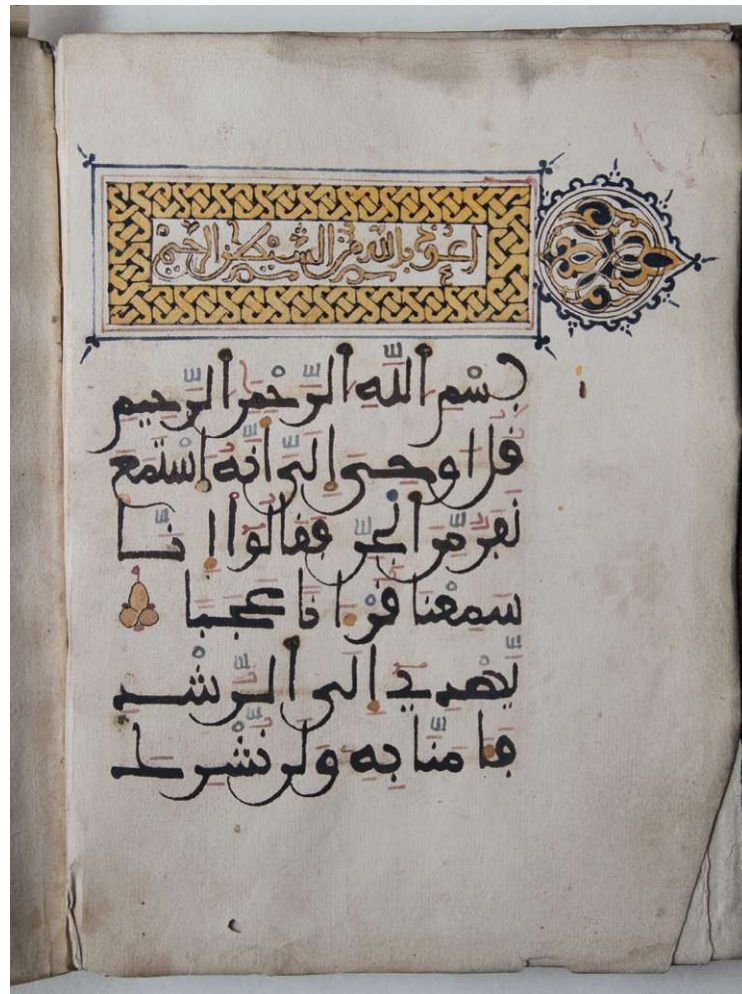 أعوذ بالله من الشيطن الرجيم
بِسْمِ اِ۬للَّهِ اِ۬لرَّحْمَٰنِ اِ۬لرَّحِيمِ
قُلُ ا۟وحِيَ إِلَيَّ أَنَّهُ اُ۪سْتَمَعَ
نَفَرٌ مِّنَ اَ۬لْجِنِّ فَقَالُوٓاْ إِنَّا
سَمِعْنَا قُرْءَاناً عَجَباً
يَهْدِےٓ إِلَي اَ۬لرُّشْدِ
فَـَٔامَنَّا بِهِۦ وَلَن نُّشْرِكَ